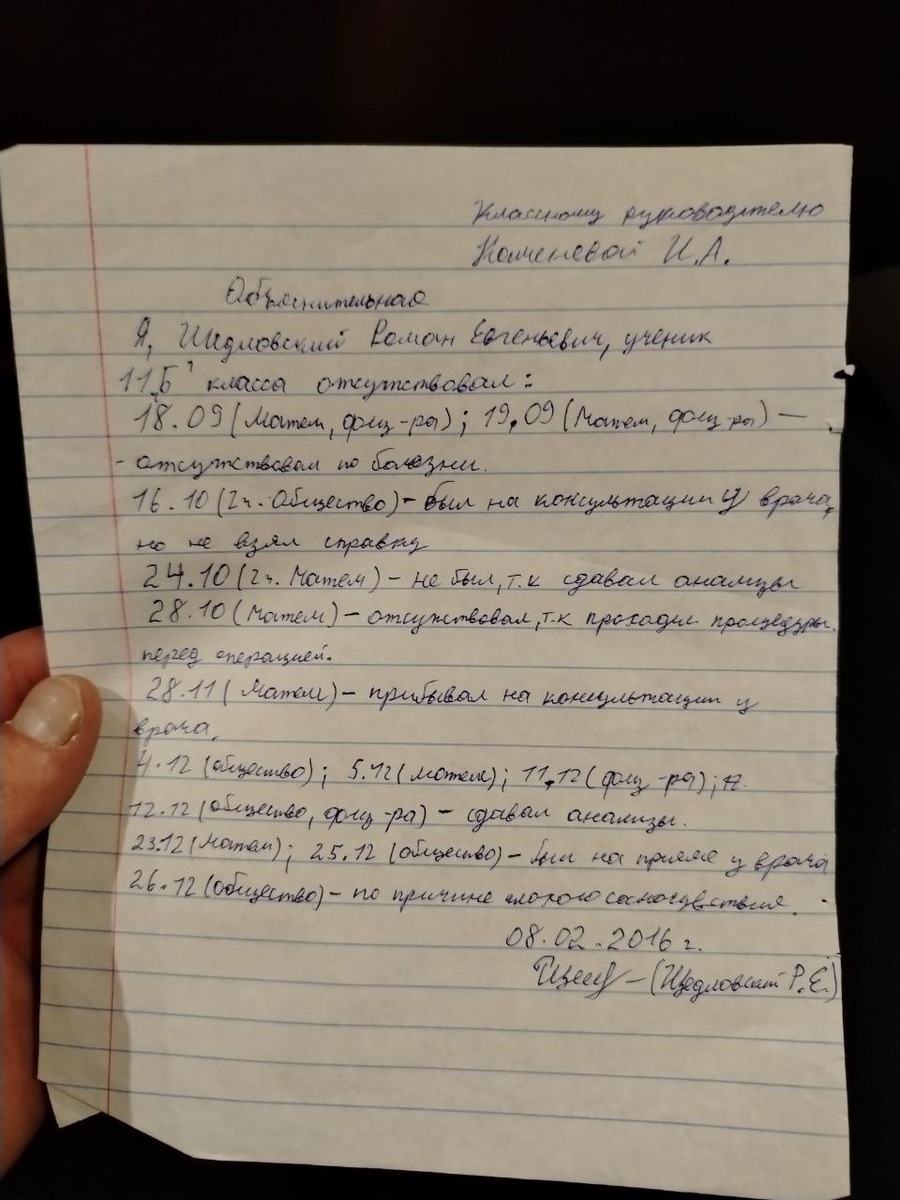 Классному руководителю
Каменевой И.А.
Объяснительная
Я, Шедловский Роман Евгеньевич, ученик
11 "Б" класса отсутствовал:
18.09 (Матем, физ-ра); 19.09 (Матем, физ-ра) —
- отсутствовал по болезни.
16.10 (2ч. Общество) - был на консультации у врача,
но не взял справку
24.10 (2ч. Матем) - не был, т.к сдавал анализы
28.10 (Матем) - отсутствовал, т-к проходил процедуры
перед операцией.
28.11 (Матем) - прибывал на консультации у
врача.
4.12 (общество); 5.12 (матем); 11.12 (физ-ра);
12.12 (общество, физ-ра) - сдавал анализы.
23.12 (матем); 25.12 (общество) - был на приёме у врача
26.12 (общество) - по причине плохого самочувствия.
08.02.2016 г.
(Шедловский Р.Е.)